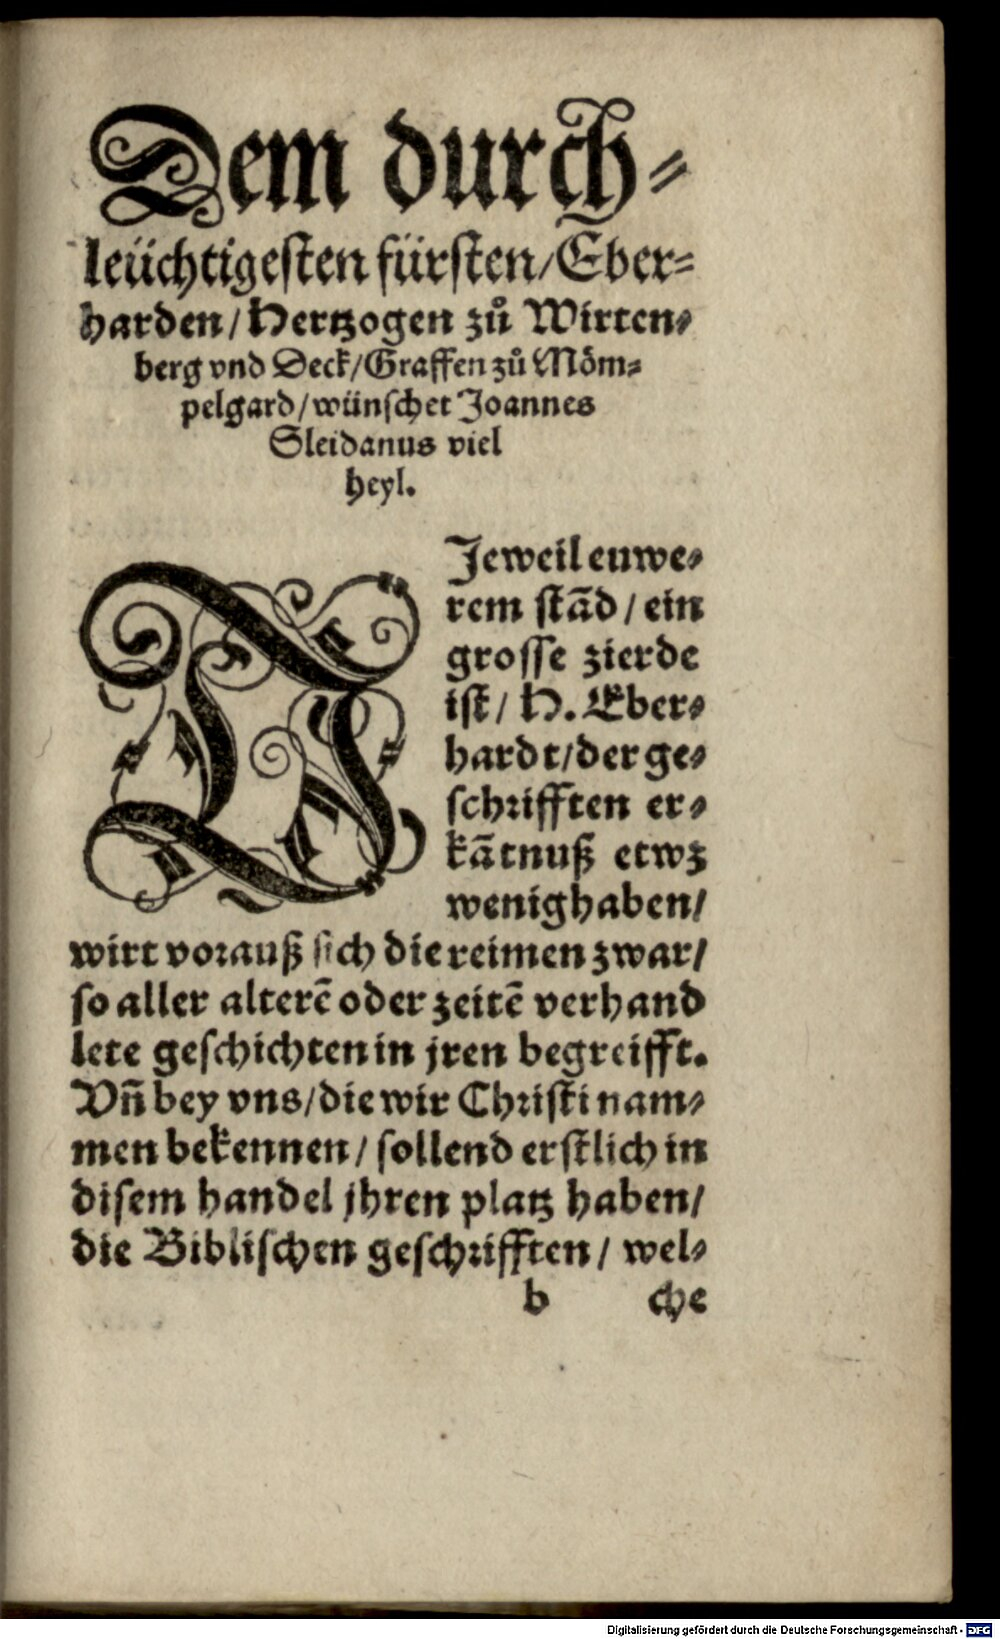 Dem durch⸗
leüchtigesten fürsten/Eber⸗
harden/Hertzogen zů Wirten⸗
berg vnd Deck/Graffen zů Möm⸗
pelgard/wünschet Joannes
Sleidanus viel
heyl.
DJeweil euwe⸗
rem stãd/ein
grosse zierde
ist/H. Eber⸗
hardt/der ge⸗
schrifften er⸗
kãtnuß etwz
wenig haben/
wirt vorauß sich die reimen zwar/
so aller alterẽ oder zeitẽ verhand
lete geschichten in jren begreifft.
Vñ bey vns/die wir Christi nam⸗
men bekennen/sollend erstlich in
disem handel jhren platz haben/
die Biblischen geschrifften/wel⸗
b che
Digitalisierung gefördert durch die Deutsche Forschungsgemeinschaft - DFG